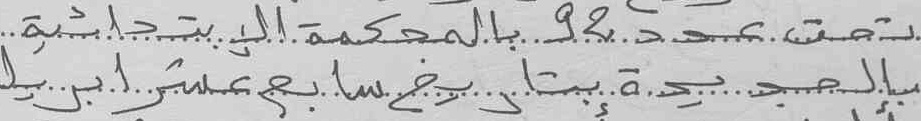 تحت عدد 92 بالمحكمة الإبتدائية
بالجديدة بتاريخ سابع عشر ابريل